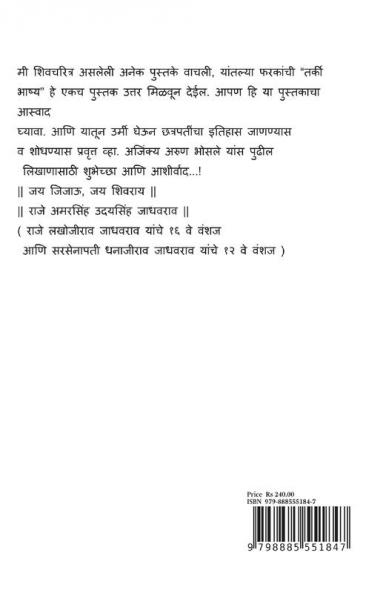 मी शिवचरित्र असलेली अनेक पुस्तके वाचली, यांतल्या फरकांची “तर्की
भाष्य” हे एकच पुस्तक उत्तर मिळवून देईल. आपण हि या पुस्तकाचा
आस्वाद
घ्यावा. आणि यातून उर्मी घेऊन छत्रपतींचा इतिहास जाणण्यास
व शोधण्यास प्रवृत्त व्हा. अजिंक्य अरुण भोसले यांस पुढील
लिखाणासाठी शुभेच्छा आणि आशीर्वाद...!
|| जय जिजाऊ, जय शिवराय ||
|| राजे अमरसिंह उदयसिंह जाधवराव ||
( राजे लखोजीराव जाधवराव यांचे १६ वे वंशज
आणि सरसेनापती धनाजीराव जाधवराव यांचे १२ वे वंशज )
Price Rs 240.00
ISBN 979-888555184-7
9 798885 551847